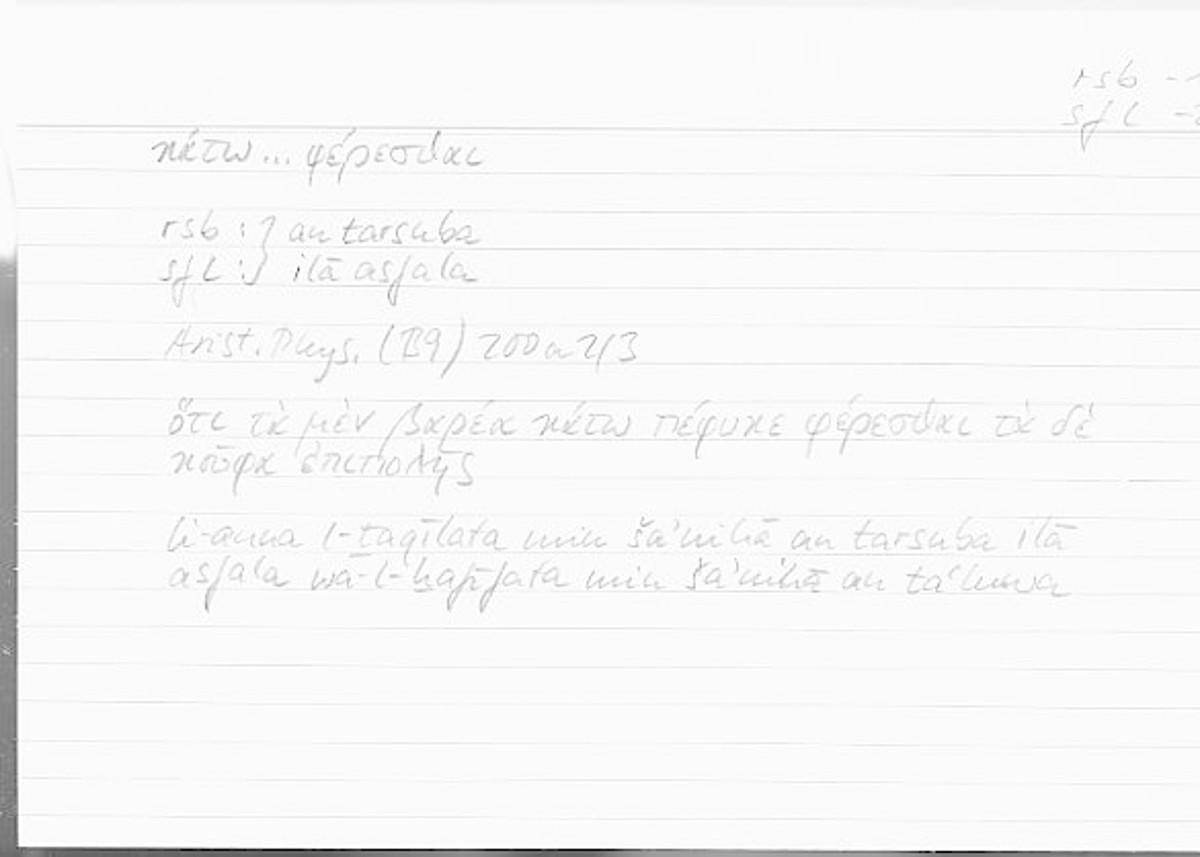 rsb -1
sfl -2
κάτω... φέρεσθαι
rsb :} an tarsuba
sfl :} ilā asfala
Arist. Phys. (B9) 200a2/3
ὅτι τὰ μὲν βαρέα κάτω πέφυκε φέρεσθαι τὰ δὲ
κοῦφα ἐπιπολῆς
li-anna l-ṯaqīlata min šaʾnihā an tarsuba ilā
asfala wa-l-ḫafīfata min šaʾnihā an taʿluwa